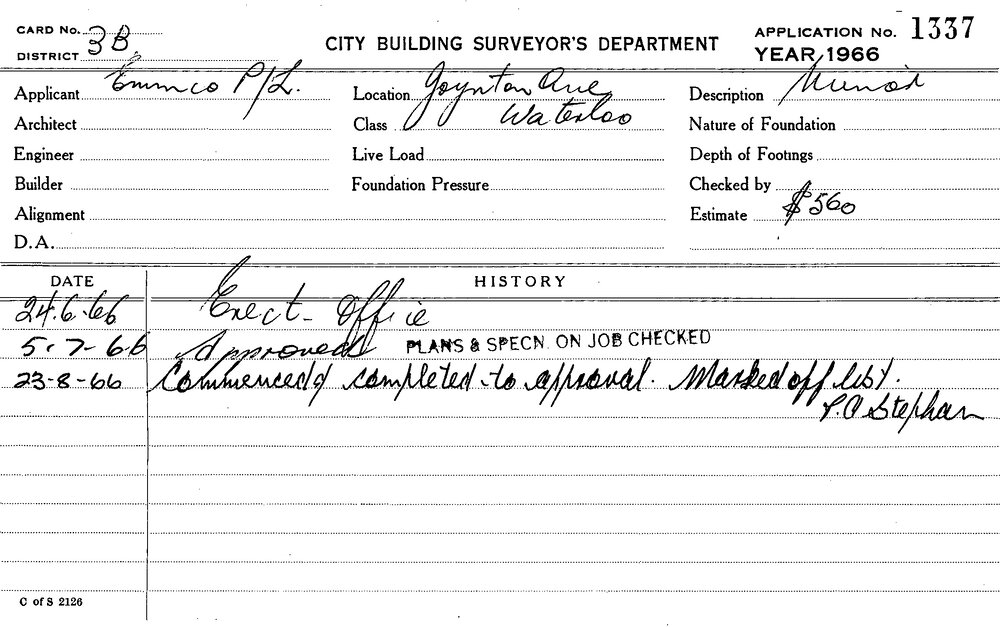 CARD No.
DISTRICT 3B.
CITY BUILDING SURVEYOR'S DEPARTMENT
APPLICATION No. 1337
YEAR 1966
Applicant Emmco P/L.
Location Joynton Ave
Waterloo
Description Minor
Architect
Class
Nature of Foundation
Engineer
Live Load
Depth of Footings
Builder
Foundation Pressure
Checked by
Alignment
Estimate $560
D.A.
DATE HISTORY
24.6.66 Erect Office
5.7-66 Approved PLANS & SPECN. ON JOB CHECKED
23-8-66 Commenced & completed to approval. Marked off list.
Stephan
C of S 2126